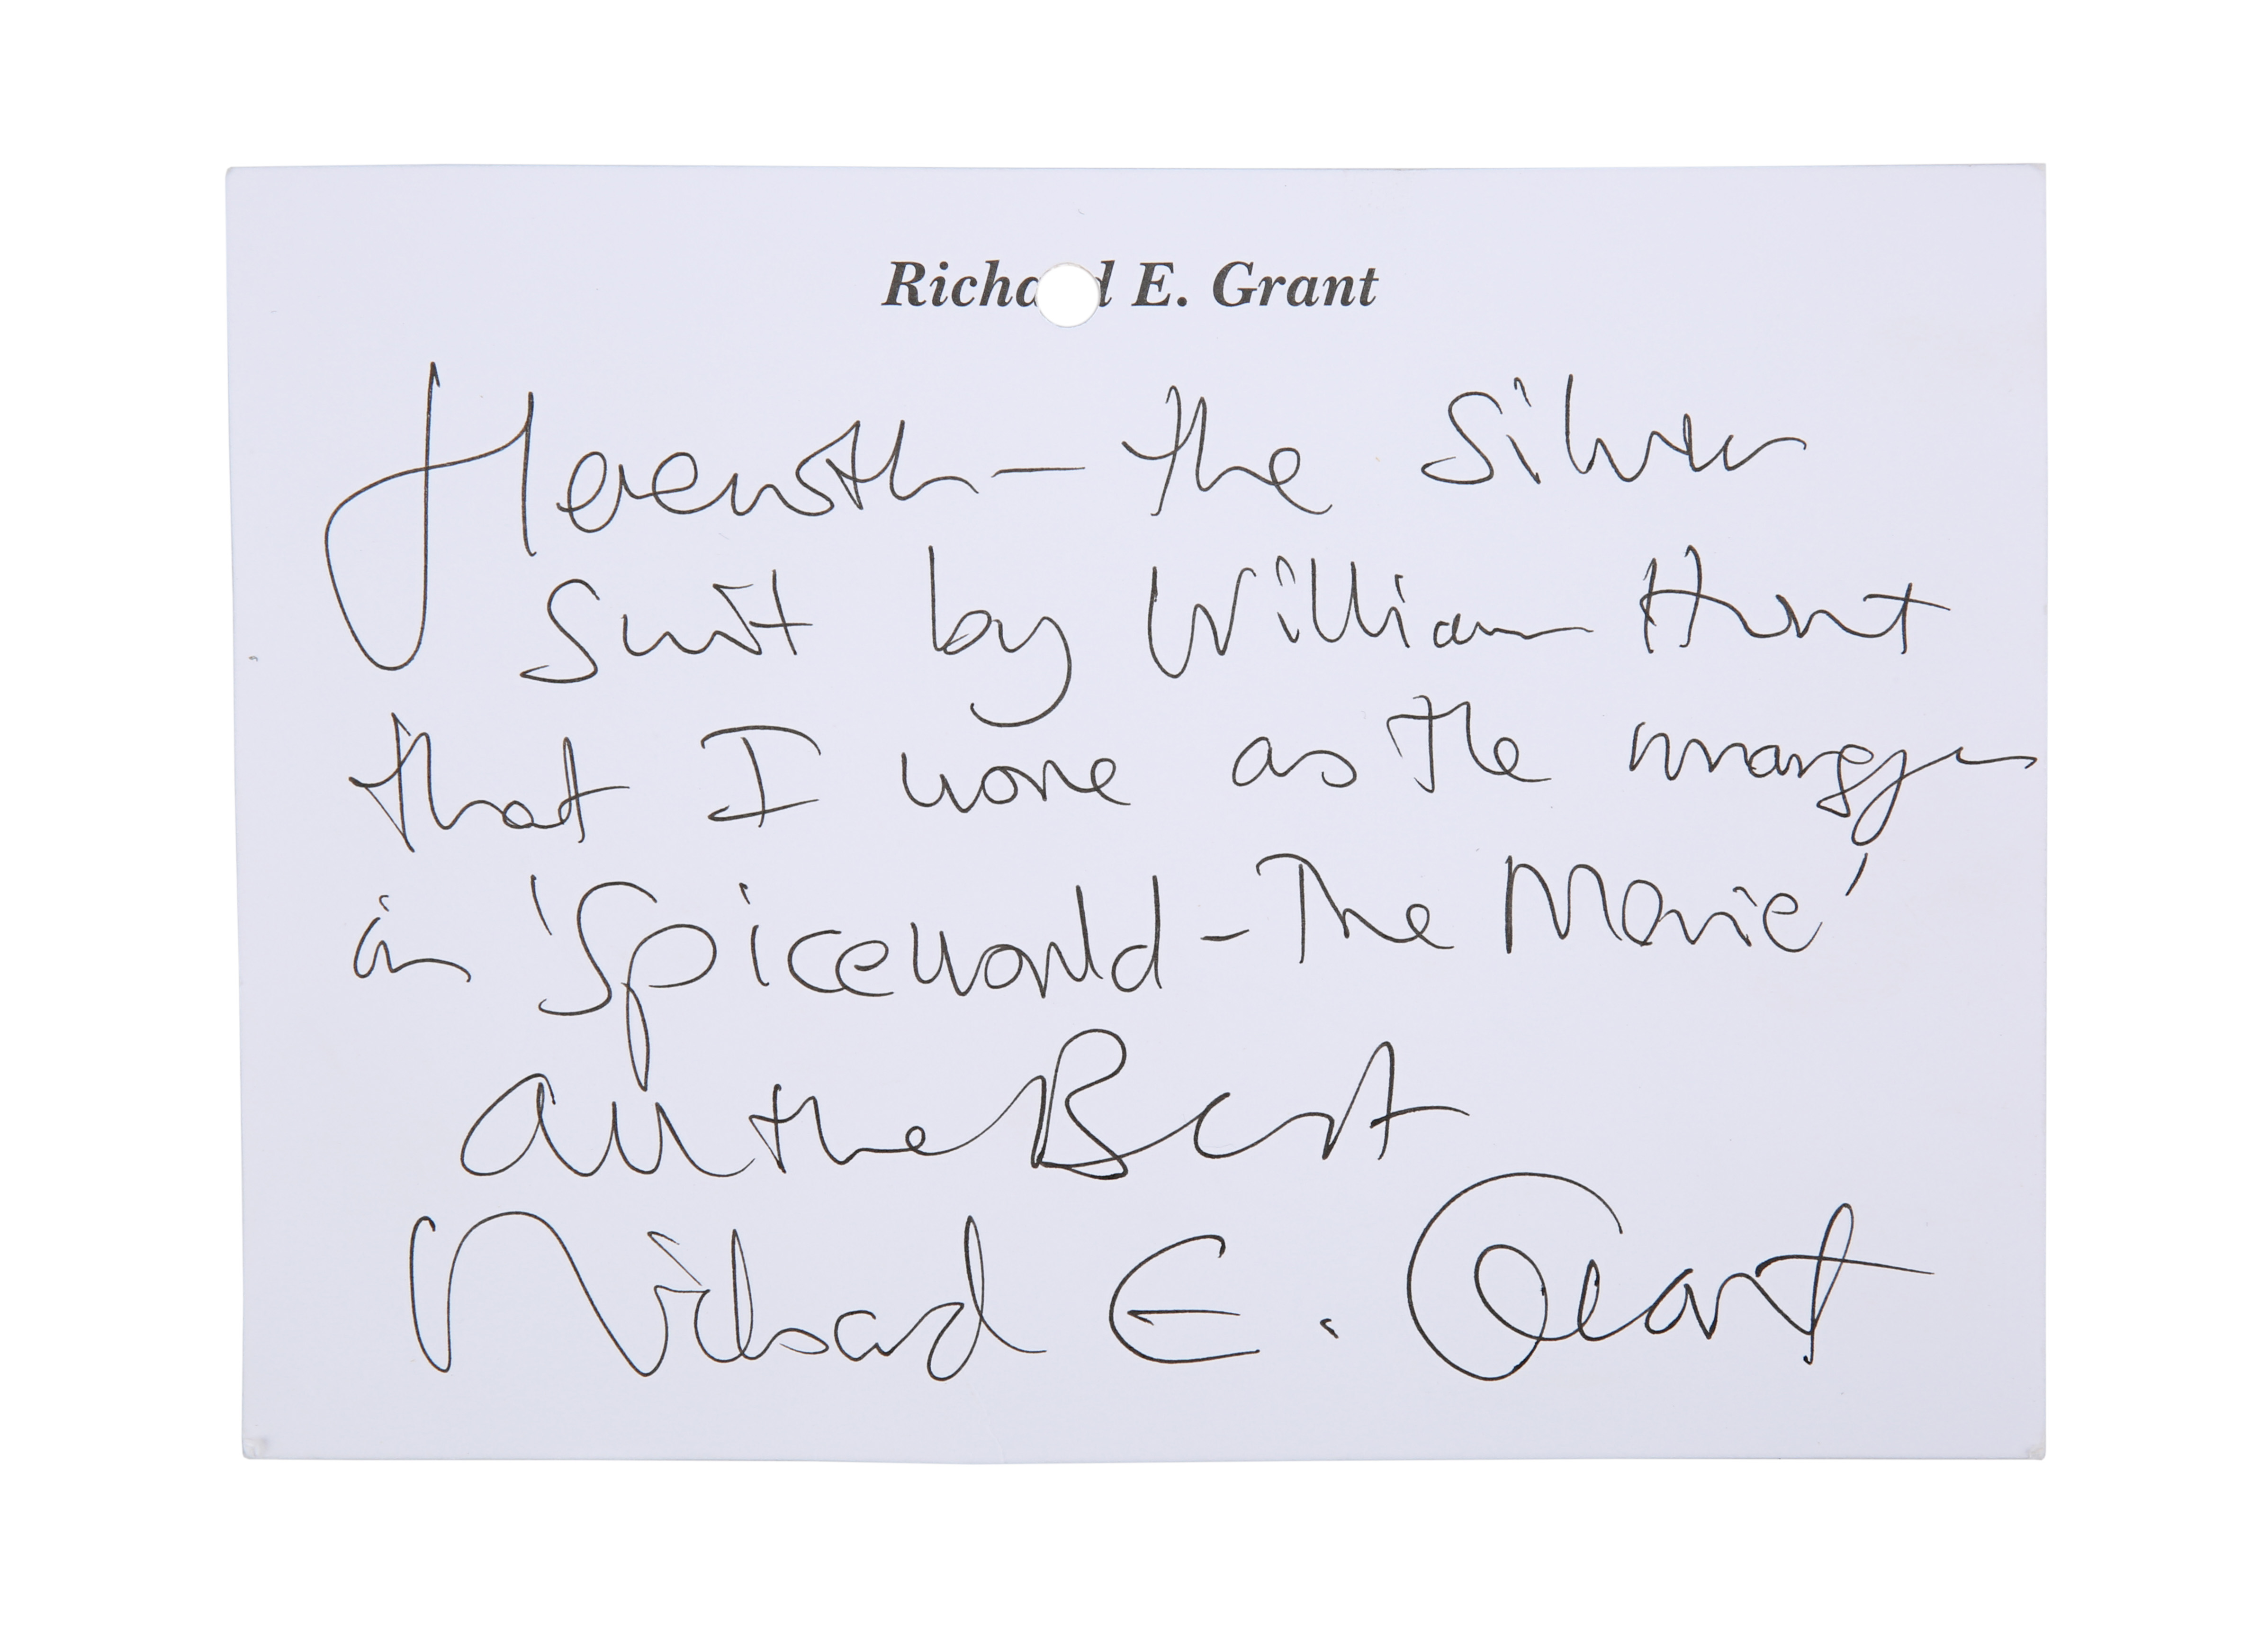 Richard E. Grant
Herewith — the Silver
Suit by William Hunt
that I wore as the manager
in 'Spiceworld - The Movie'
all the Best
Richard E. Grant